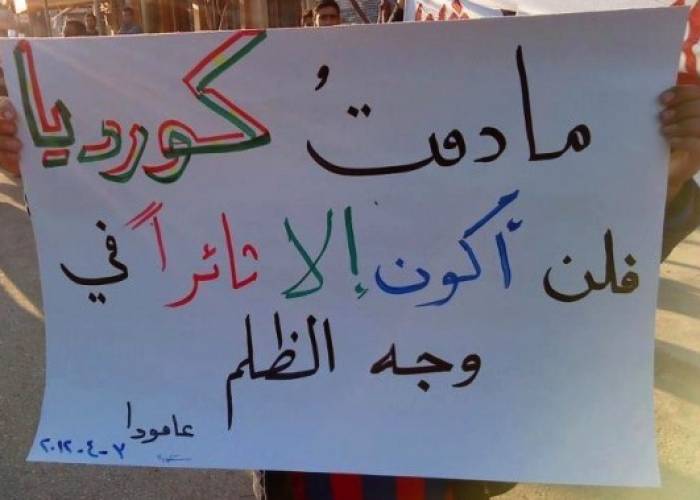 ما دمتُ كورديا
فلن أكون إلا ثائراً في
وجه الظلم
عامودا
٧-٤-٢٠١٢